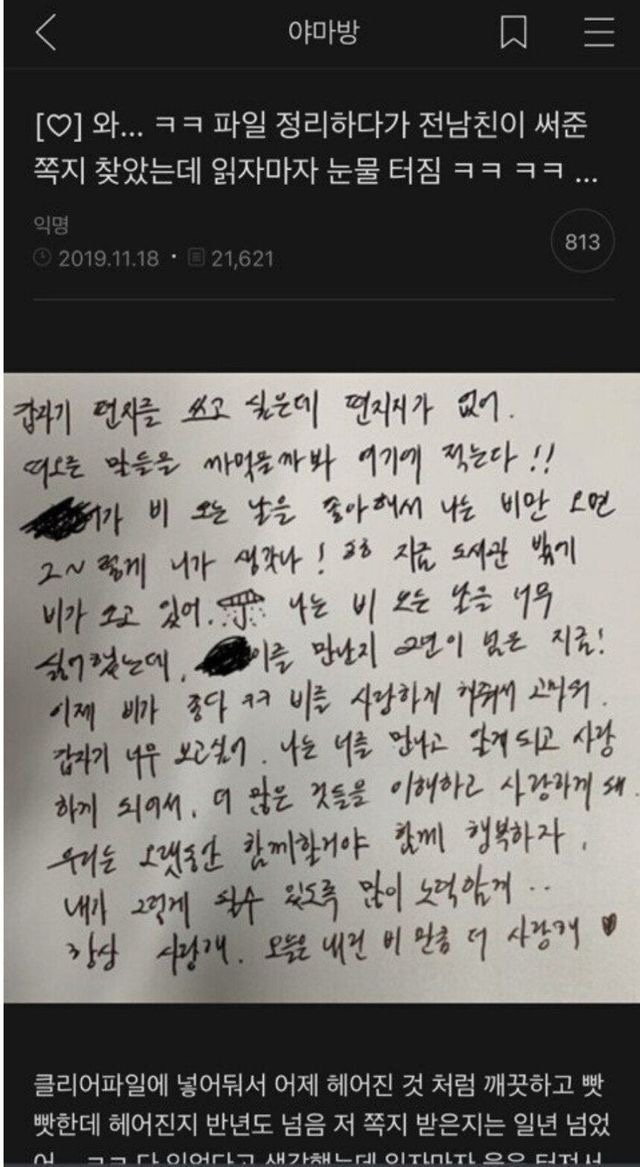 야마방
[♡] 와... ㅋㅋ 파일 정리하다가 전남친이 써준
쪽지 찾았는데 읽자마자 눈물 터짐 ㅋㅋ ㅋㅋ ...
익명
813
2019.11.18 · 21,621
갑자기 편지를 쓰고 싶은데 편지지가 없어.
떠오른 말들을 까먹을까봐 여기에 적는다!!
가 비 오는 날을 좋아해서 나는 비만 오면
그~렇게 니가 생각나! 지금 도서관 밖에
비가 오고 있어. 나는 비 오는 날을 너무
싫어했는데, 이를 만난지 2년이 넘은 지금!
이제 비가 좋다 ㅋㅋ 비를 사랑하게 해줘서 고마워.
갑자기 너무 보고싶어. 나는 너를 만나고 알게 되고 사랑
하게 되어서, 더 많은 것들을 이해하고 사랑하게 돼.
우리는 오랫동안 함께할거야 함께 행복하자.
내가 그렇게 될수 있도록 많이 노력할게..
항상 사랑해. 오늘은 내린 비 만큼 더 사랑해 ♥
클리어파일에 넣어둬서 어제 헤어진 것 처럼 깨끗하고 빳
빳한데 헤어진지 반년도 넘음 저 쪽지 받은지는 일년 넘었
어... ㅋㅋ 다 잊었다고 생각했는데 읽자마자 울음 터져서